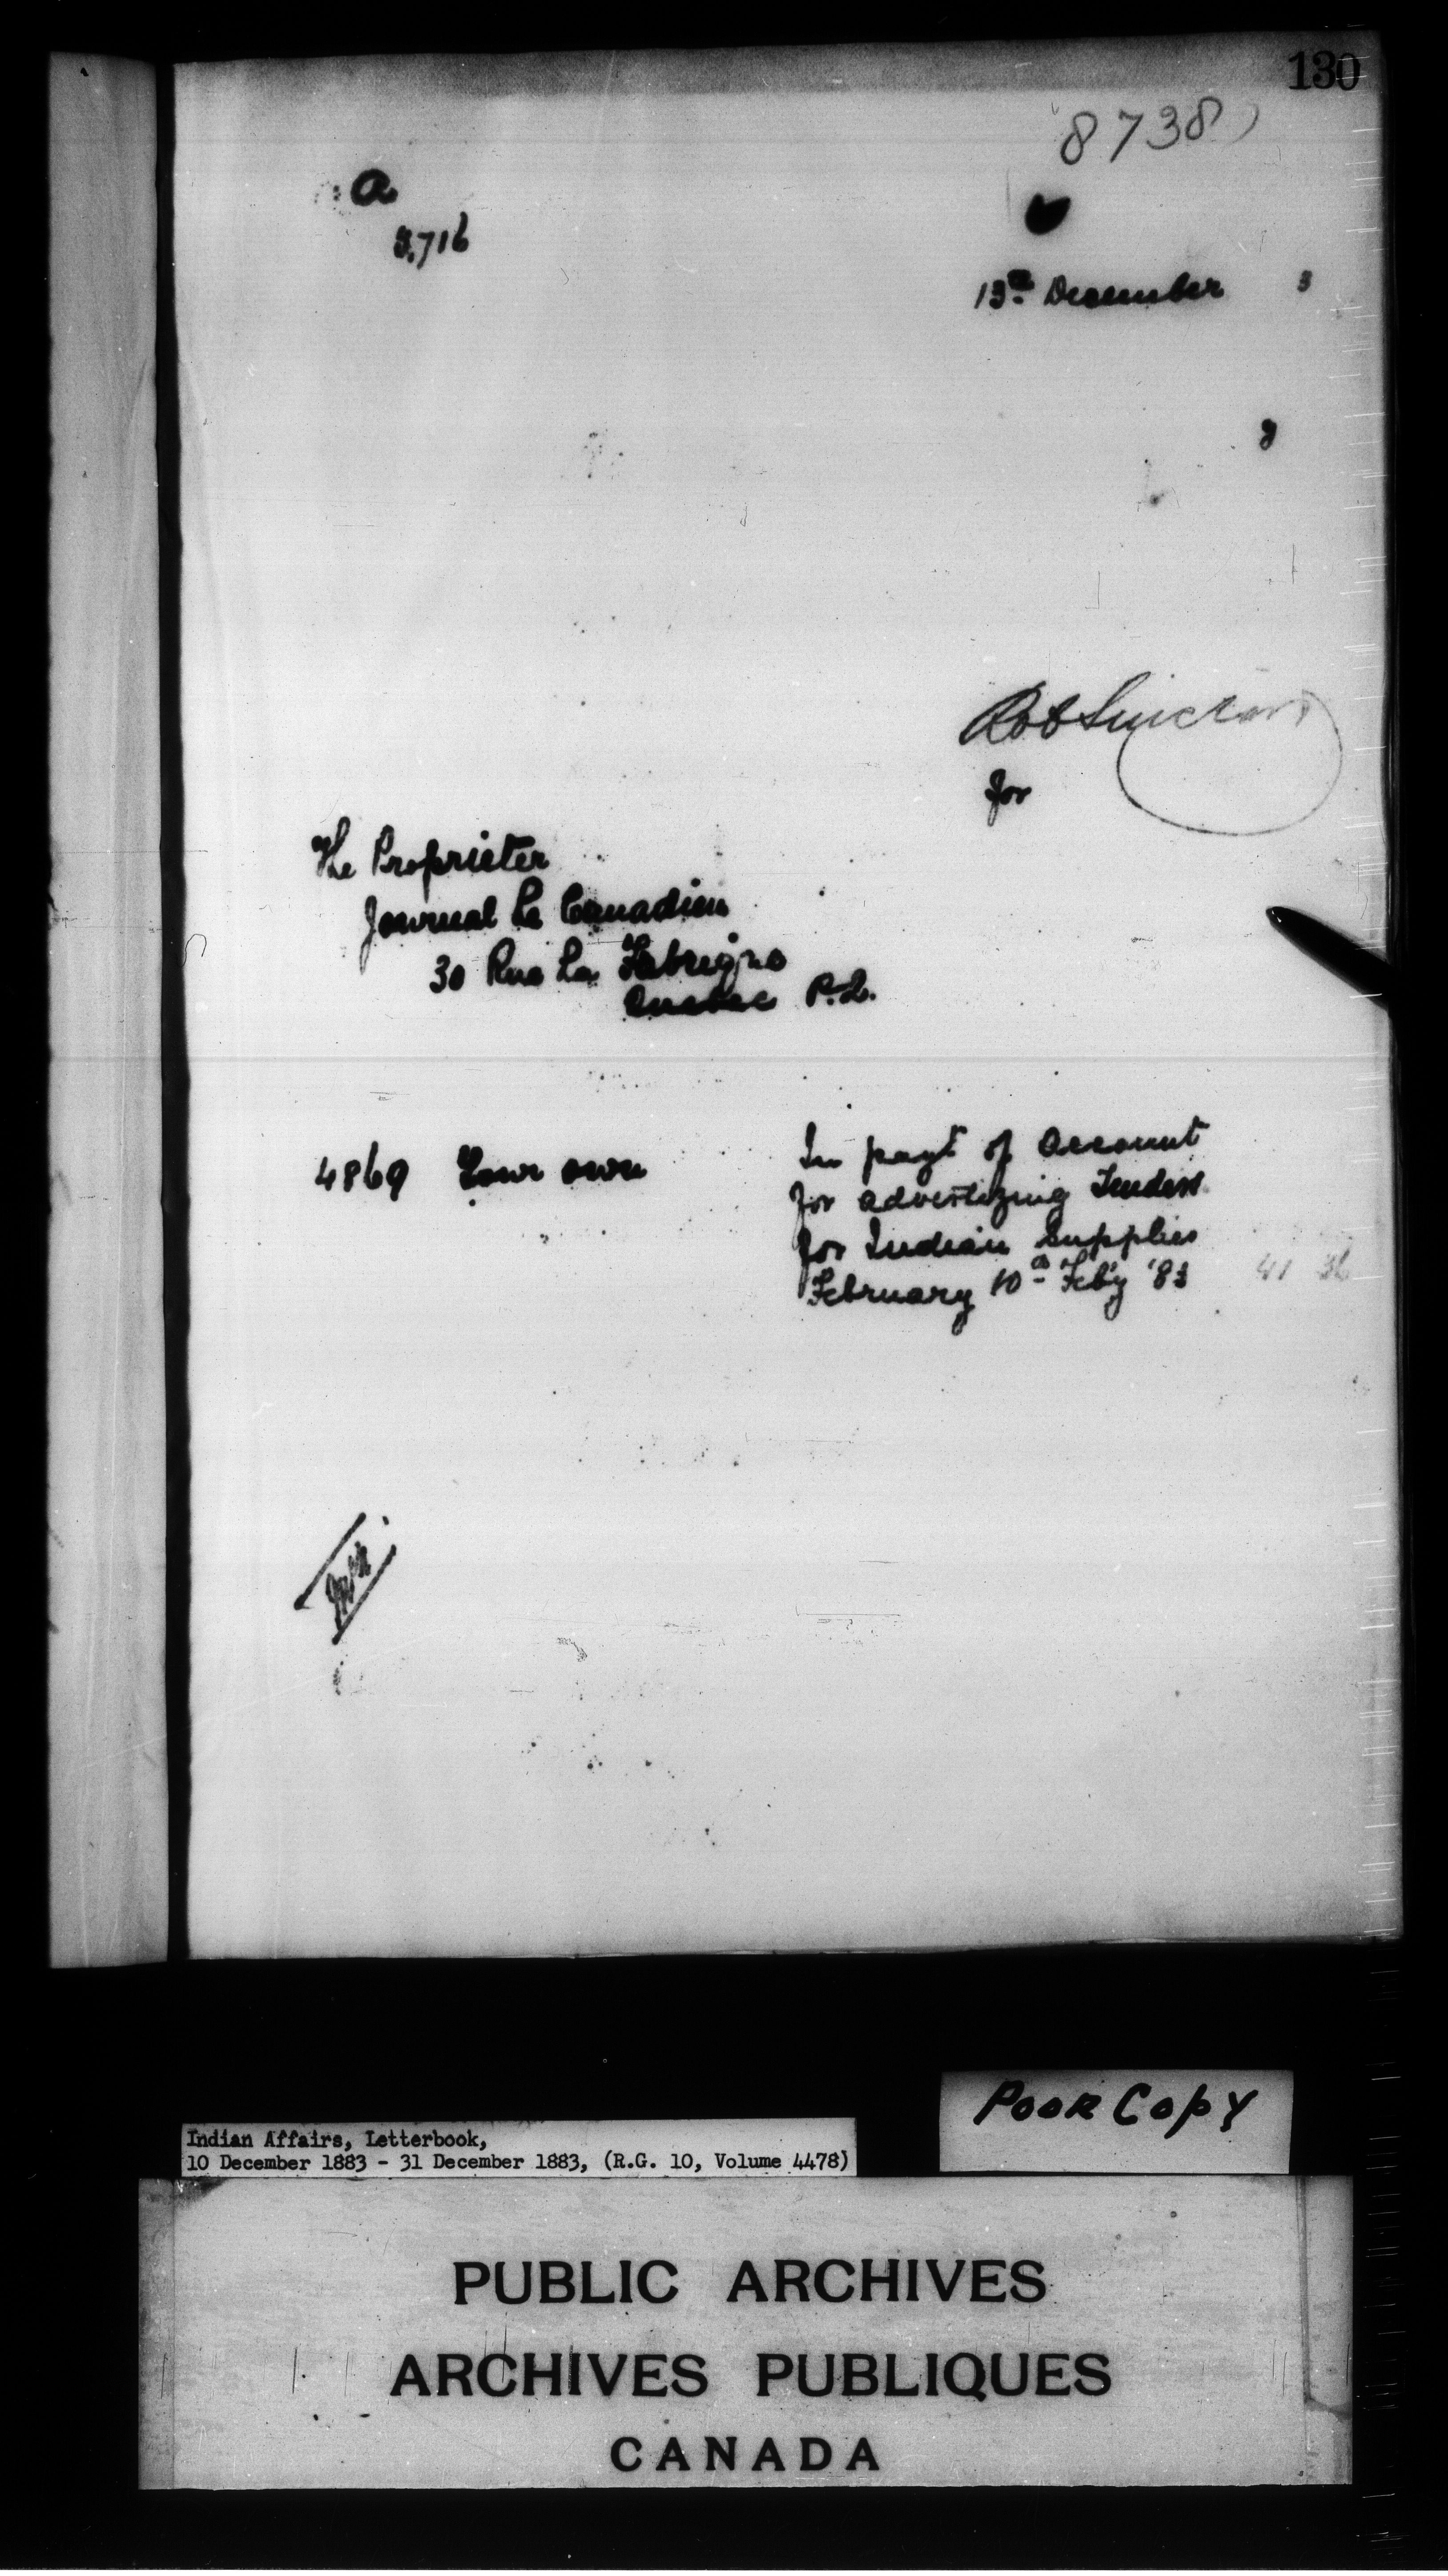 130
8738
a
3.716
13th December 3
Rob Sinclair
for
The Proprietor
Journal Le Canadien
30 Rue La Fabrique
Quebec P.Q.
4869 Your own
In payt of Account
for advertizing Tenders
for Indian Supplies
February 10th Feb'y '83 41 36
Poor Copy
Indian Affairs, Letterbook,
10 December 1883 - 31 December 1883, (R.G. 10, Volume 4478)
PUBLIC ARCHIVES
ARCHIVES PUBLIQUES
CANADA